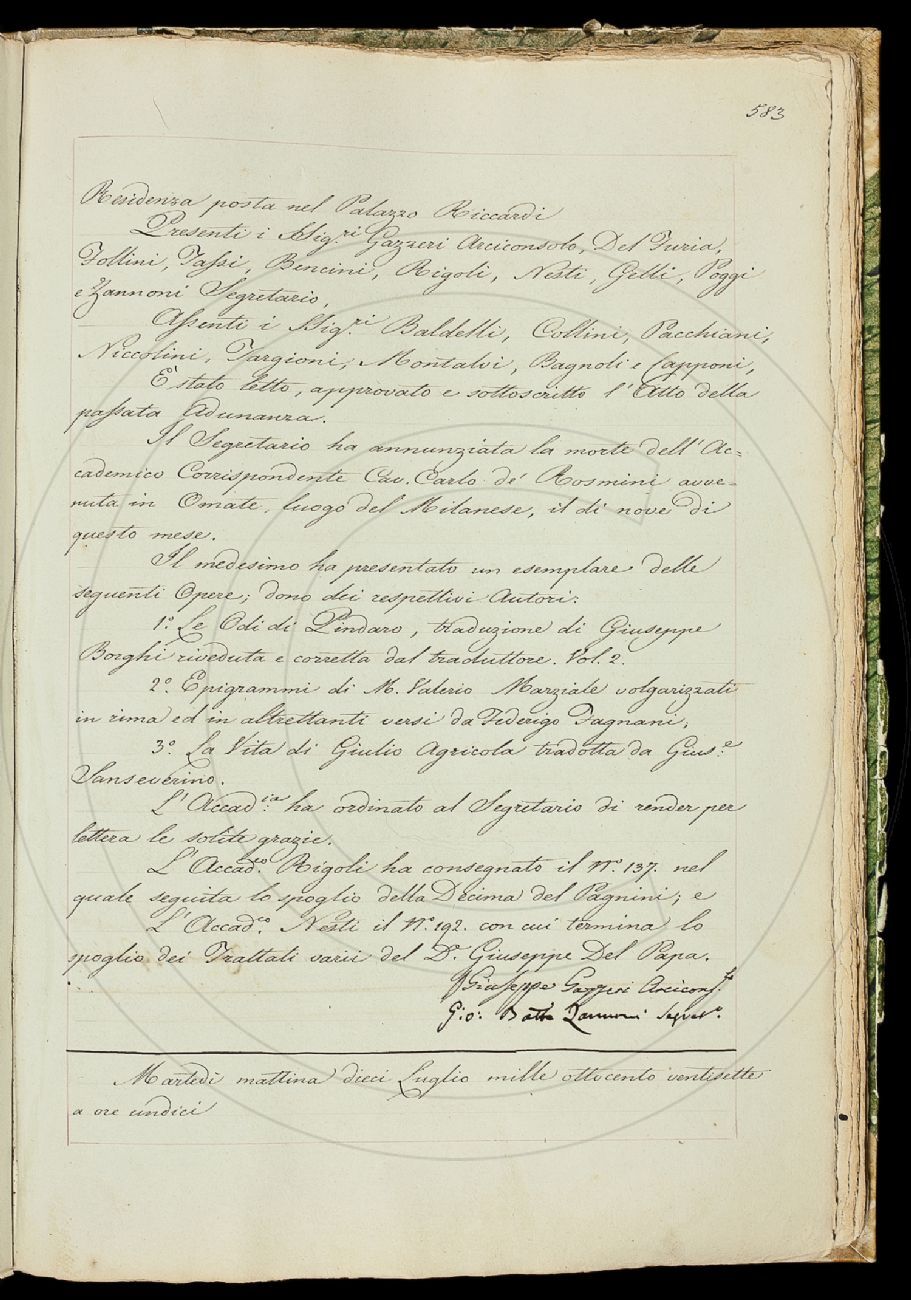 583
Residenza posta nel Palazzo Riccardi
Presenti i SSig.ri Gazzeri Arciconsolo, Del Furia,
Follini, Tassi, Bencini, Rigoli, Nesti, Gelli, Poggi
e Zannoni Segretario,
Assenti i SSig.ri Baldelli, Collini, Pacchiani,
Niccolini, Targioni, Montalvi, Bagnoli e Capponi,
E' stato letto, approvato e sottoscritto l'Atto della
passata Adunanza.
Il Segretario ha annunziata la morte dell'Ac=
cademico Corrispondente Cav. Carlo de' Rosmini avve-
nuta in Omate, luogo del Milanese, il di nove di
questo mese.
Il medesimo ha presentato un esemplare delle
seguenti Opere; dono dei respettivi Autori:
1.° Le Odi di Pindaro, traduzione di Giuseppe
Borghi riveduta e corretta dal traduttore. Vol. 2.
2.° Epigrammi di M. Valerio Marziale volgarizzati
in rima ed in altrettanti versi da Federigo Fagnani,
3.° La Vita di Giulio Agricola tradotta da Gius.e
Sanseverino.
L'Accad.ia ha ordinato al Segretario di render per
lettera le solite grazie.
L'Accad.co Rigoli ha consegnato il N.° 137. nel
quale seguita lo spoglio della Decima del Pagnini; e
L'Accad.co Nesti il N.° 192. con cui termina lo
spoglio dei Trattati varii del D.r Giuseppe Del Papa.
Giuseppe Gazzeri Arcicons.
Gio: Batta Zannoni Segret.o
Martedì mattina dieci Luglio mille ottocento ventisette
a ore undici